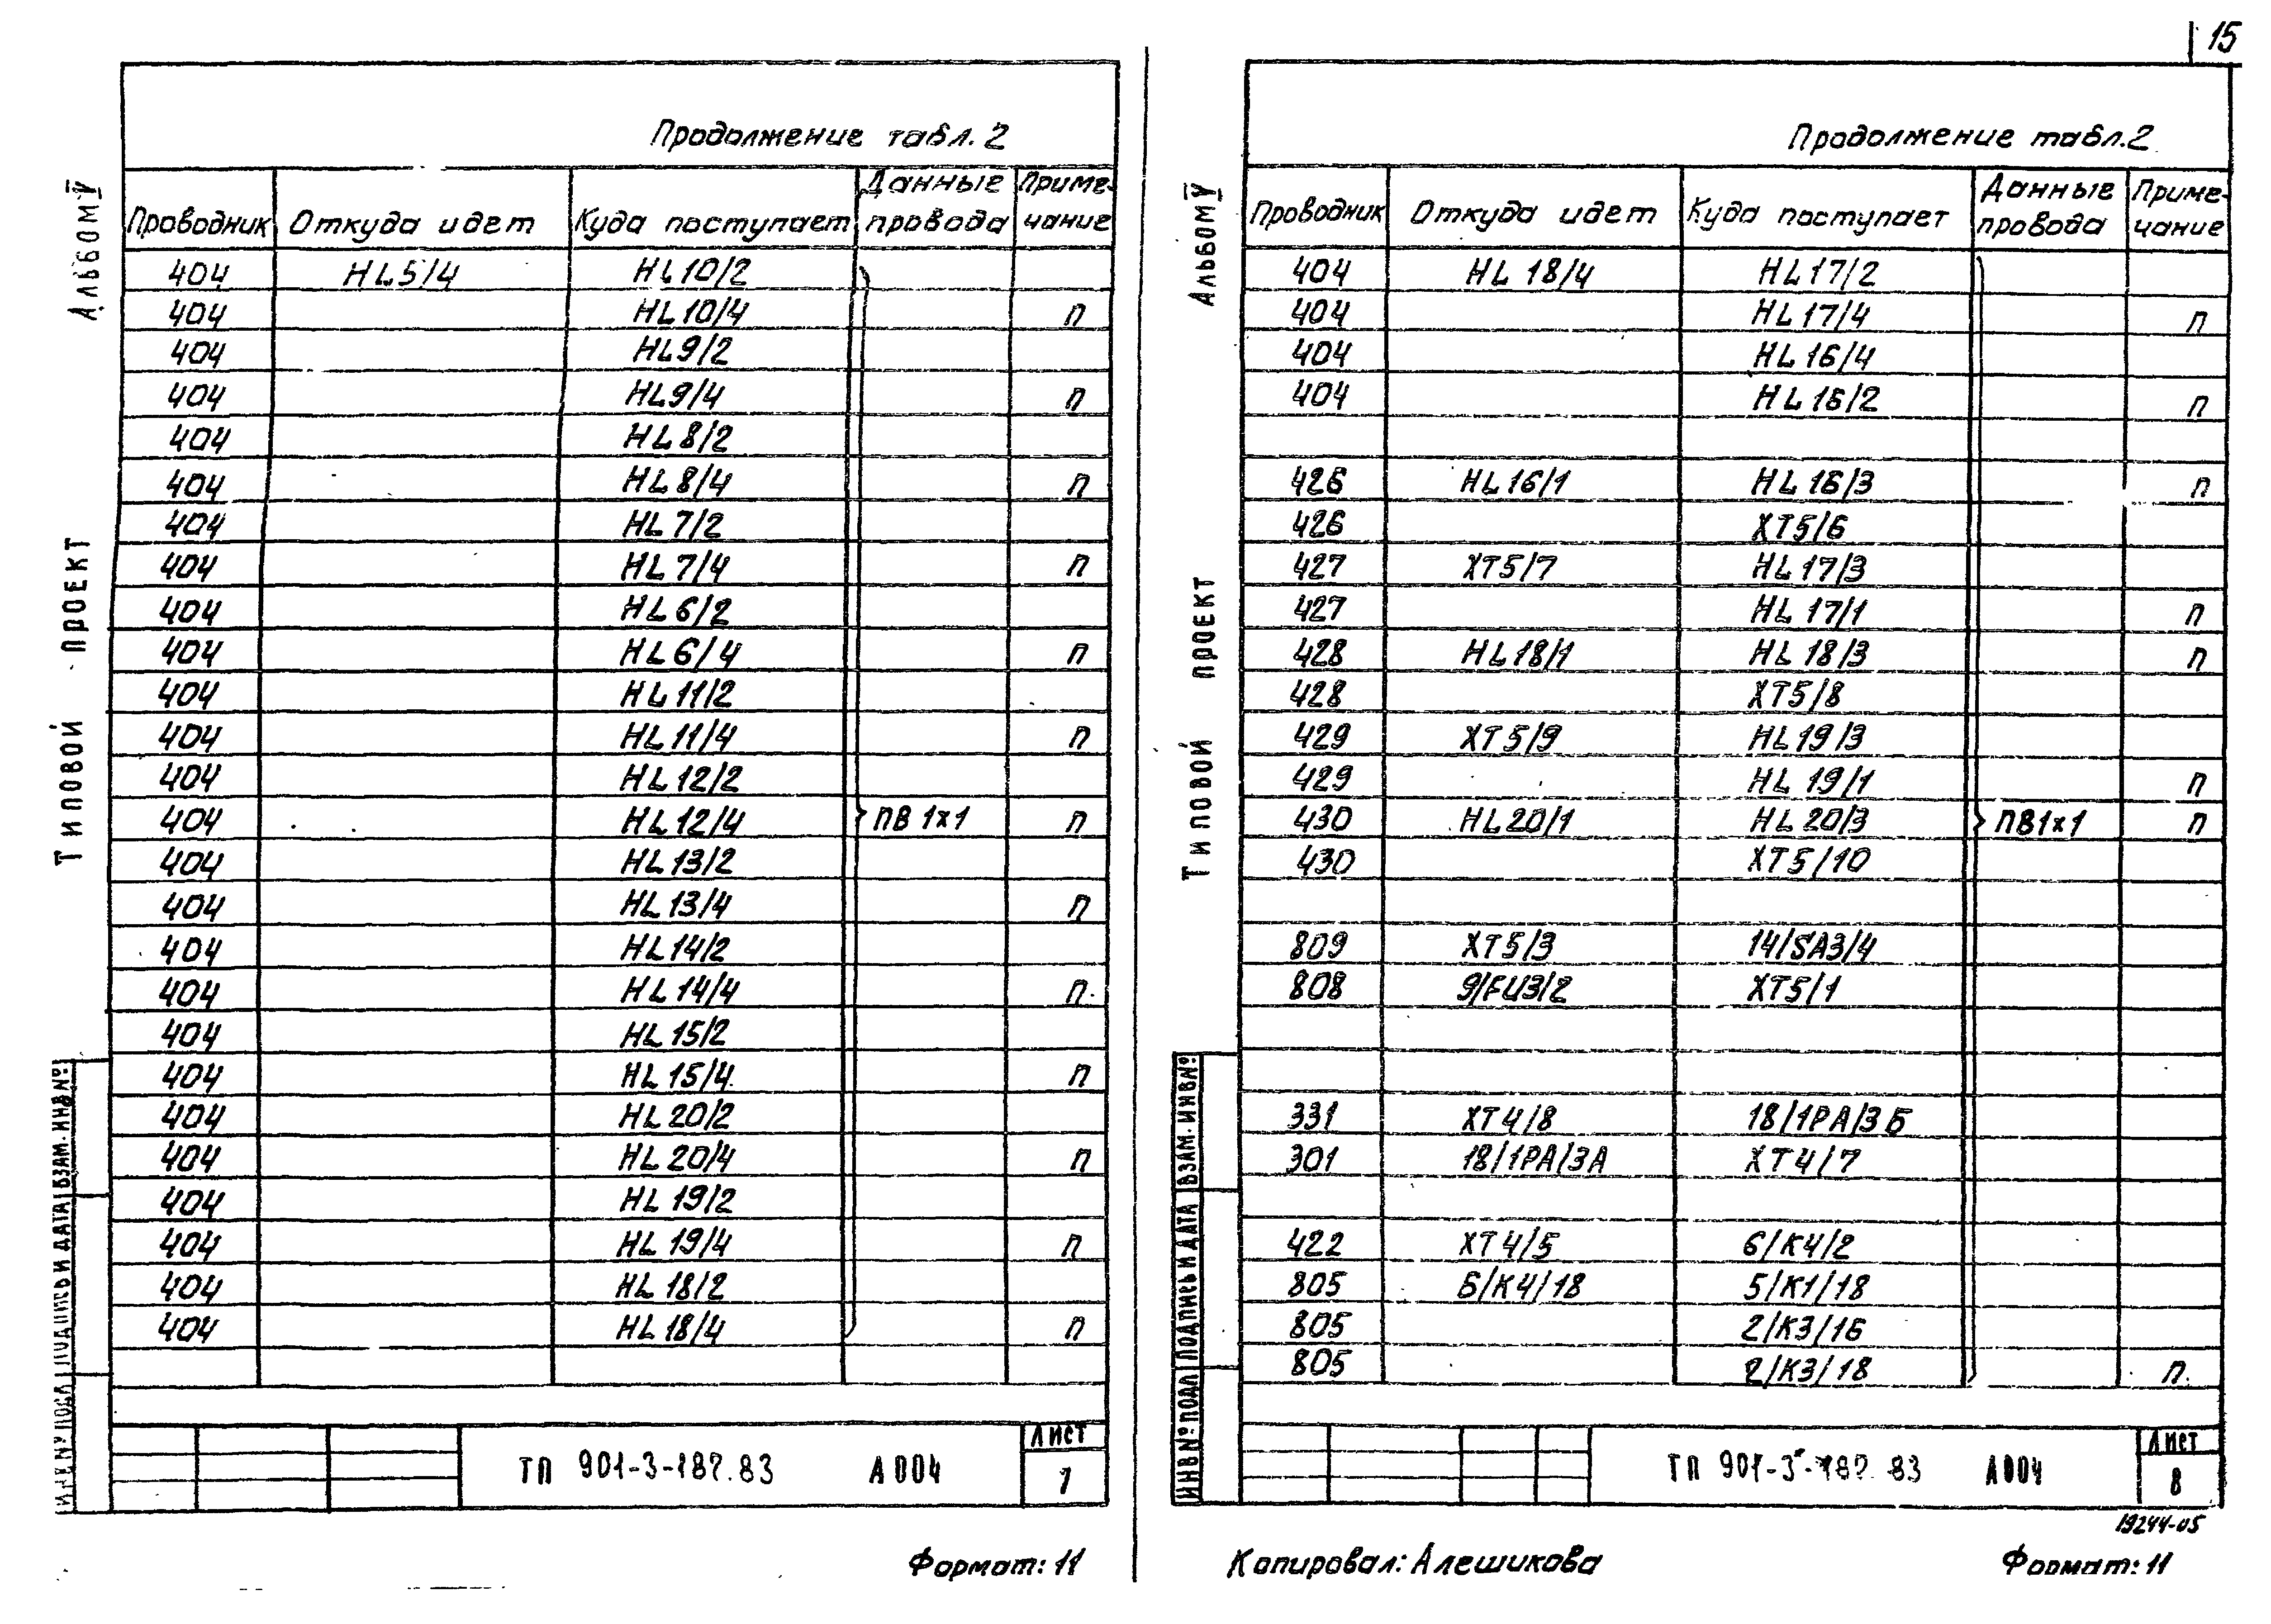 15
Альбом V
Типовой проект
Продолжение табл. 2
Проводник Откуда идет Куда поступает Данные провода Примечание
404 HL5/4 HL10/2
404 HL10/4 п
404 HL9/2
404 HL9/4 п
404 HL8/2
404 HL8/4 п
404 HL7/2
404 HL7/4 п
404 HL6/2
404 HL6/4 п
404 HL11/2
404 HL11/4 п
404 HL12/2
404 HL12/4 ПВ 1х1 п
404 HL13/2
404 HL13/4 п
404 HL14/2
404 HL14/4 п
404 HL15/2
404 HL15/4 п
404 HL20/2
404 HL20/4 п
404 HL19/2
404 HL19/4 п
404 HL18/2
404 HL18/4 п
Подпись и дата Взам. инв №
ТП 901-3-187.83 А004
Лист
7
Формат: 11
Альбом V
Типовой проект
Продолжение табл. 2
Проводник Откуда идет Куда поступает Данные провода Примечание
404 HL18/4 HL17/2
404 HL17/4 п
404 HL16/4
404 HL16/2 п
426 HL16/1 HL16/3 п
426 XT5/6
427 XT5/7 HL17/3
427 HL17/1 п
428 HL18/1 HL18/3 п
428 XT5/8
429 XT5/9 HL19/3
429 HL19/1 п
430 HL20/1 HL20/3 ПВ1х1 п
430 XT5/10
809 XT5/3 14/SA3/4
808 9/FU3/2 XT5/1
331 XT4/8 18/1PA/3Б
301 18/1PA/3A XT4/7
422 XT4/5 6/K4/2
805 6/K4/18 5/K1/18
805 2/K3/16
805 2/K3/18 п.
Инв № подл Подпись и дата Взам. инв №
ТП 901-3-187.83 А004
Лист
8
19244-05
Копировал: Алешикова
Формат: 11